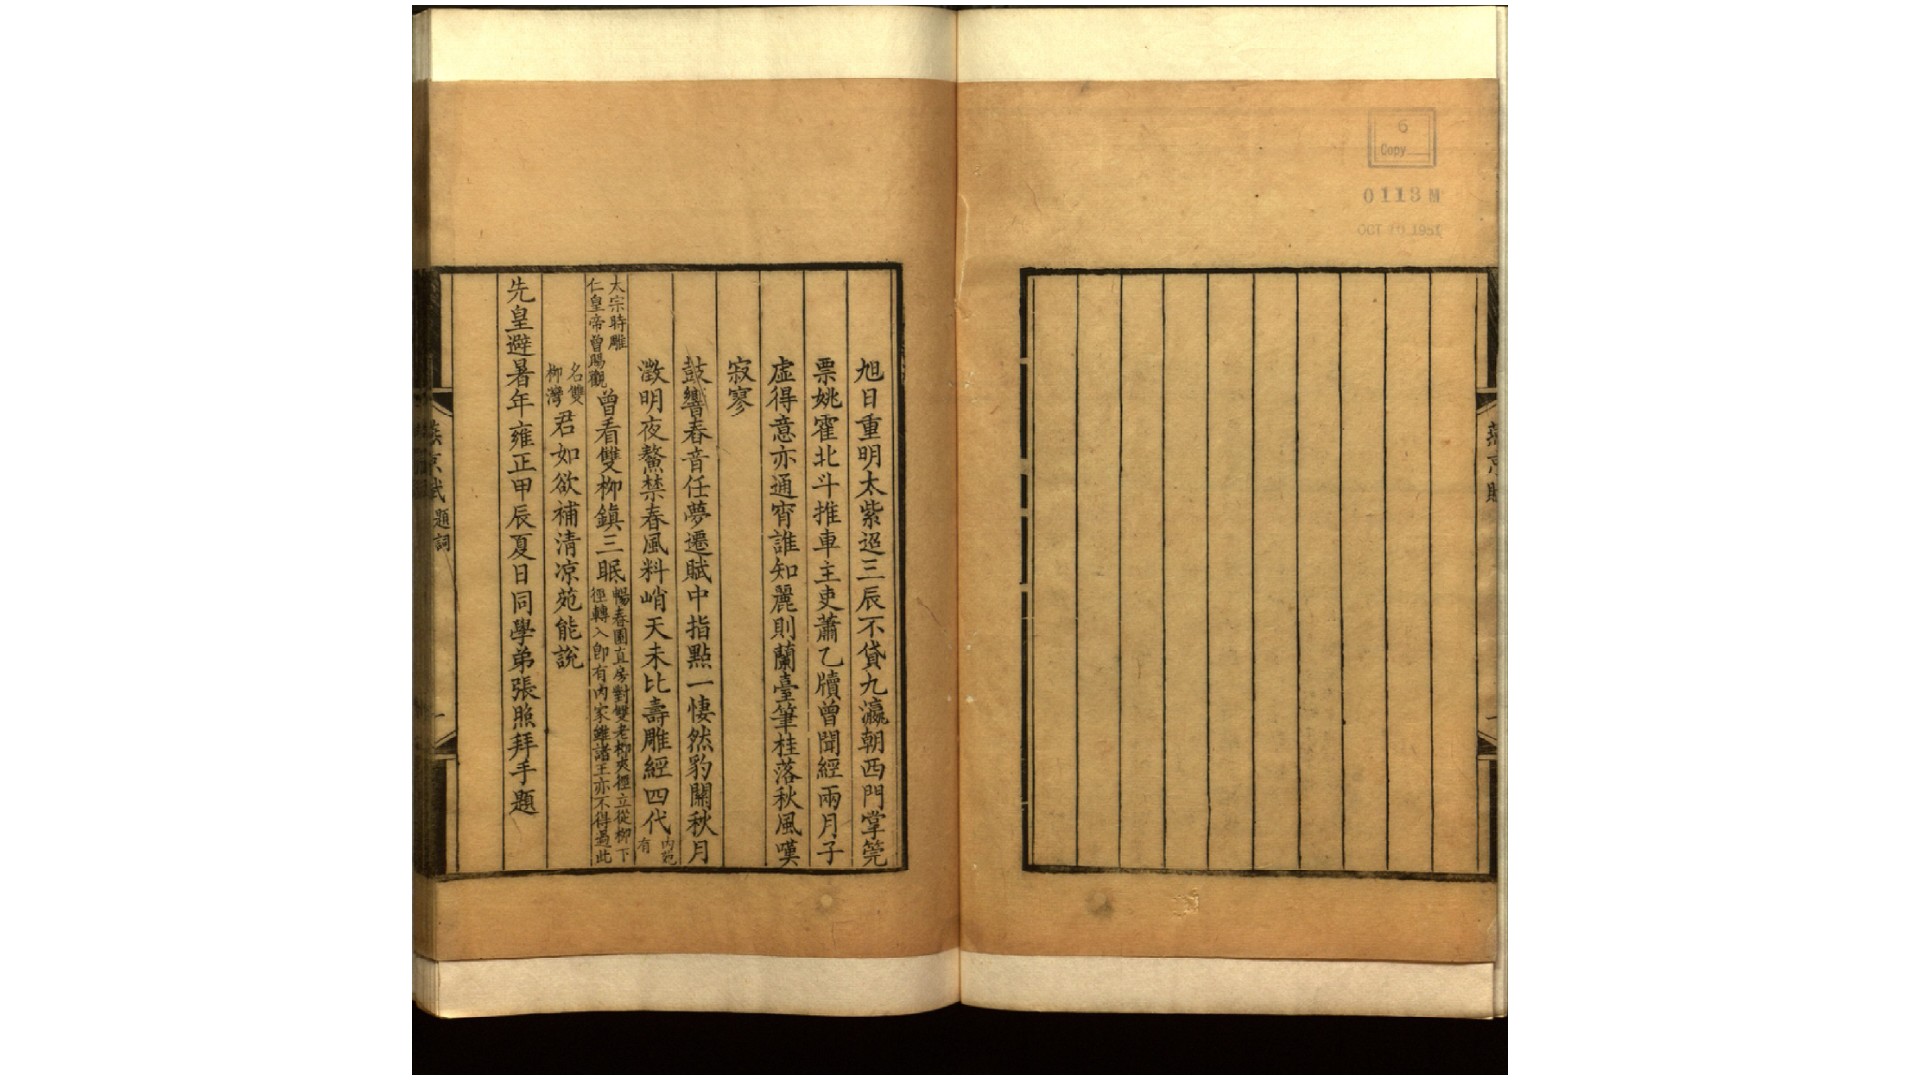 6
Copy
0113M
OCT 10 1951
燕京賦
一
旭日重明太紫迢三辰不貸九瀛朝西門掌筦
票姚霍北斗推車主吏蕭乙牘曾聞經兩月子
虛得意亦通宵誰知麗則蘭臺筆桂落秋風嘆
寂寥
鼓響春音任夢遷賦中指點一悽然豹關秋月
澂明夜鰲禁春風料峭天未比壽雕經四代內苑
有
太宗時雕
仁皇帝曾賜觀曾看雙柳鎮三眠暢春園直房對雙老柳夾徑立從柳下
徑轉入卽有內家雖諸王亦不得過此
名雙
柳灣君如欲補清凉苑能說
先皇避暑年雍正甲辰夏日同學弟張照拜手題
燕京賦題詞
一